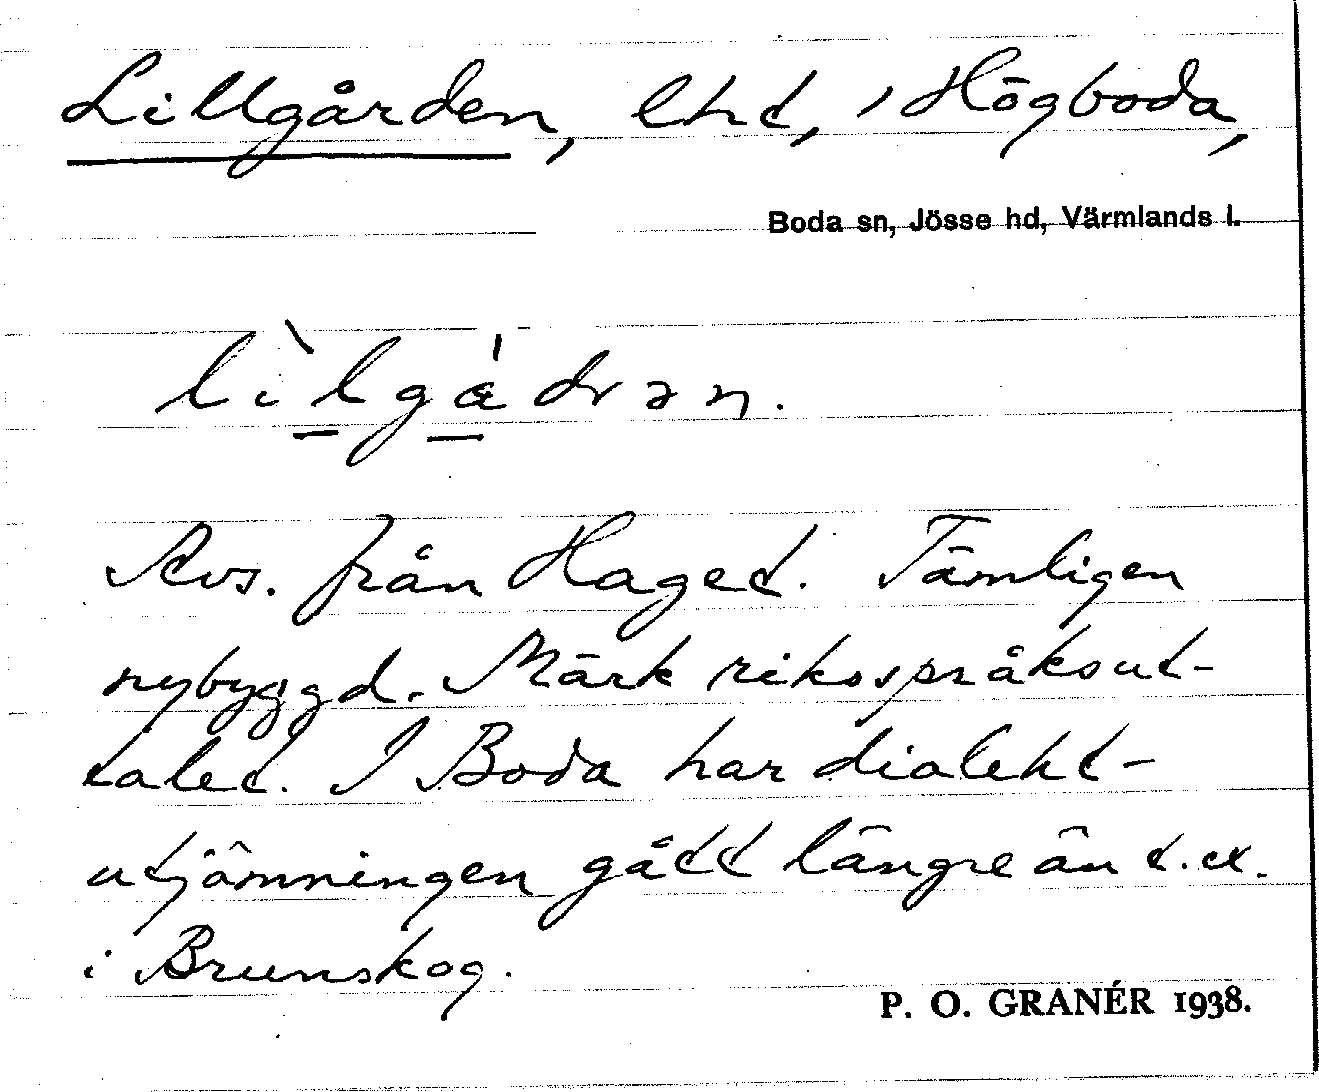 Lillgården, lht, i Högboda,
Boda sn, Jösse hd, Värmlands l.
Avs. från Haget. Tämligen
nybyggd. Märk riksspråksut-
talet. I Boda har dialekt-
utjämningen gått längre än t.ex.
i Brunskog.
P. O. GRANÉR 1938.